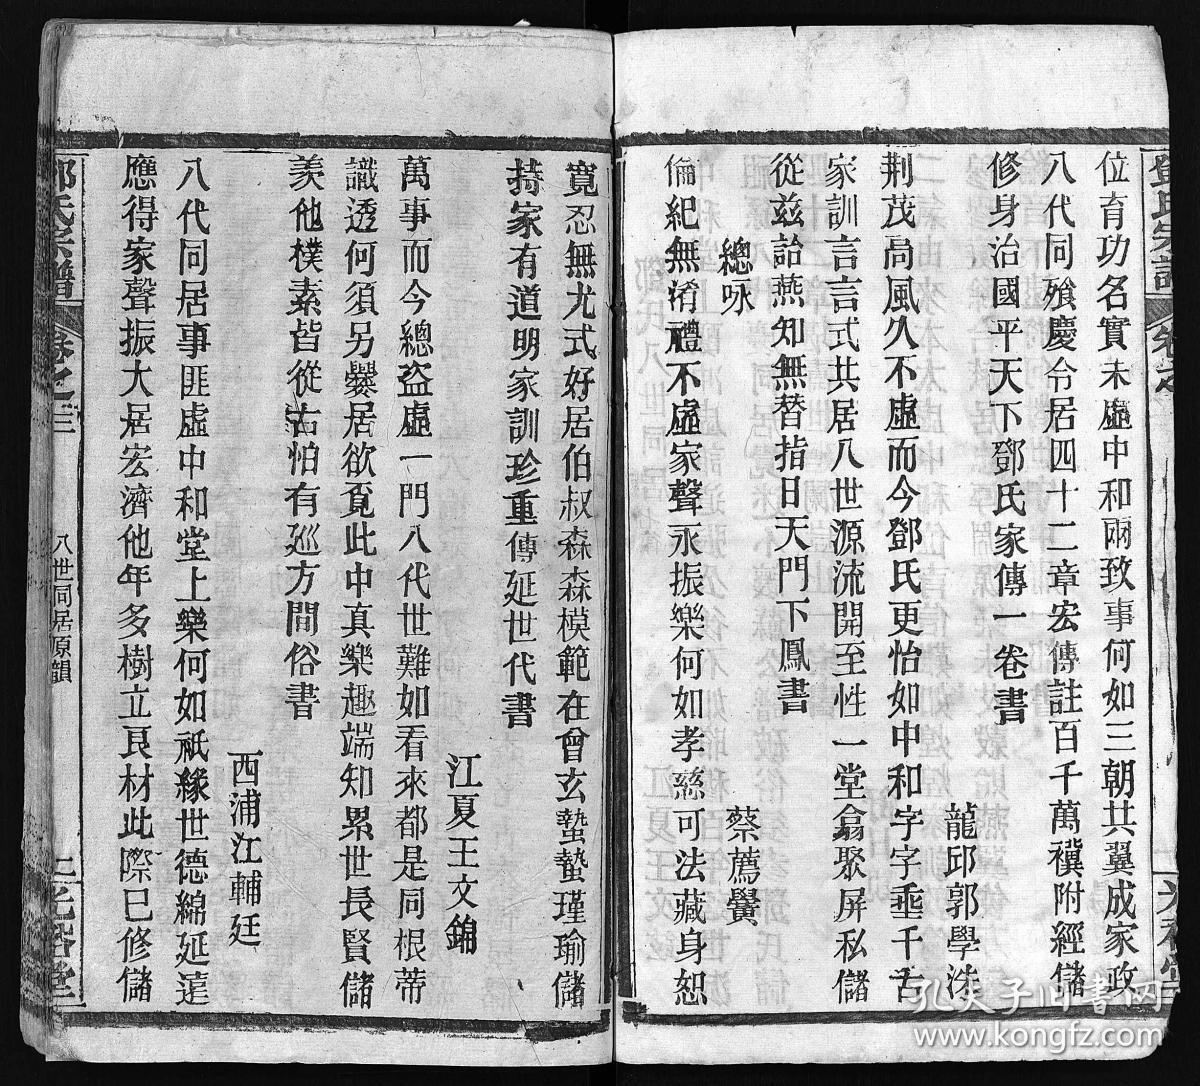 鄧氏宗譜
卷之
位育功名實未虛中和兩致事何如三朝共翼成家政
八代同飱慶令居四十二章宏傳註百千萬襈附經儲
修身治國平天下鄧氏家傳一卷書
龍邱郭學洙
荆茂高風久不虛而今鄧氏更怡如中和字字垂千古
家訓言言式共居八世源流開至性一堂翕聚屏私儲
從兹詒燕知無替指日天門下鳳書
總咏
蔡薦鑾
倫紀無淆禮不虛家聲永振樂何如孝慈可法藏身恕
寬忍無尤式好居伯叔森森模範在曾玄蟄蟄瑾瑜儲
持家有道明家訓珍重傳延世代書
江夏王文錦
萬事而今總盜虛一門八代世難如看來都是同根蒂
識透何須另爨居欲覓此中真樂趣端知累世長賢儲
羨他樸素皆從古怕有巡方間俗書
西浦江輔廷
八代同居事匪虛中和堂上樂何如祇緣世德綿延遠
應得家聲振大居宏濟他年多樹立良材此際已修儲
鄧氏宗譜
卷之三
八世同居原韻
光裕堂
孔夫子旧书网
www.kongfz.com